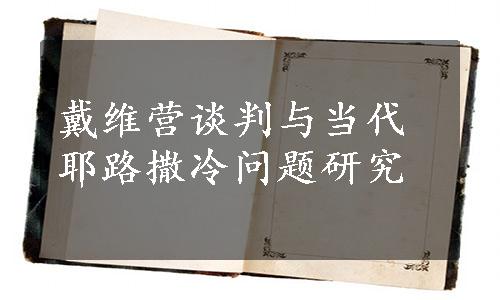 戴维营谈判与当代
耶路撒冷问题研究